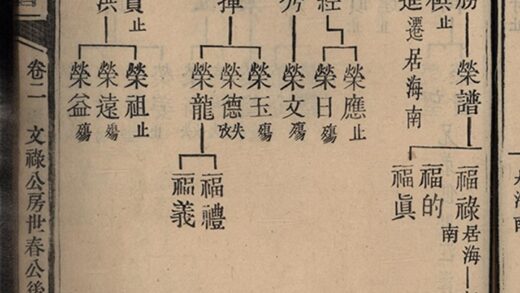 海南
榮譜
福祿居海南
福的
福眞
止
遷居海南
經
榮應止
榮日殤
榮文殤
揮
榮玉殤
榮德失攷
榮龍
福禮
福義
止
洪
榮祖止
榮遠殤
榮益殤
卷二 文祿公房世春公後